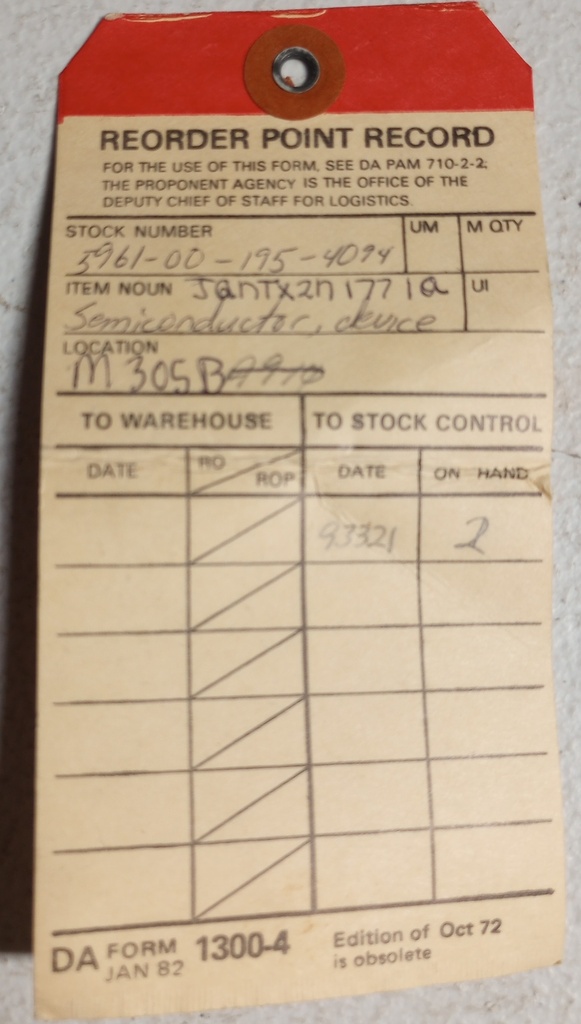 REORDER POINT RECORD
FOR THE USE OF THIS FORM, SEE DA PAM 710-2-2;
THE PROPONENT AGENCY IS THE OFFICE OF THE
DEPUTY CHIEF OF STAFF FOR LOGISTICS.
STOCK NUMBER UM M QTY
5961-00-195-4094
ITEM NOUN JanTX2n1771a UI
Semiconductor, device
LOCATION
M305B
TO WAREHOUSE TO STOCK CONTROL
DATE RO ROP DATE ON HAND
93321 2
DA FORM 1300-4 Edition of Oct 72
JAN 82 is obsolete